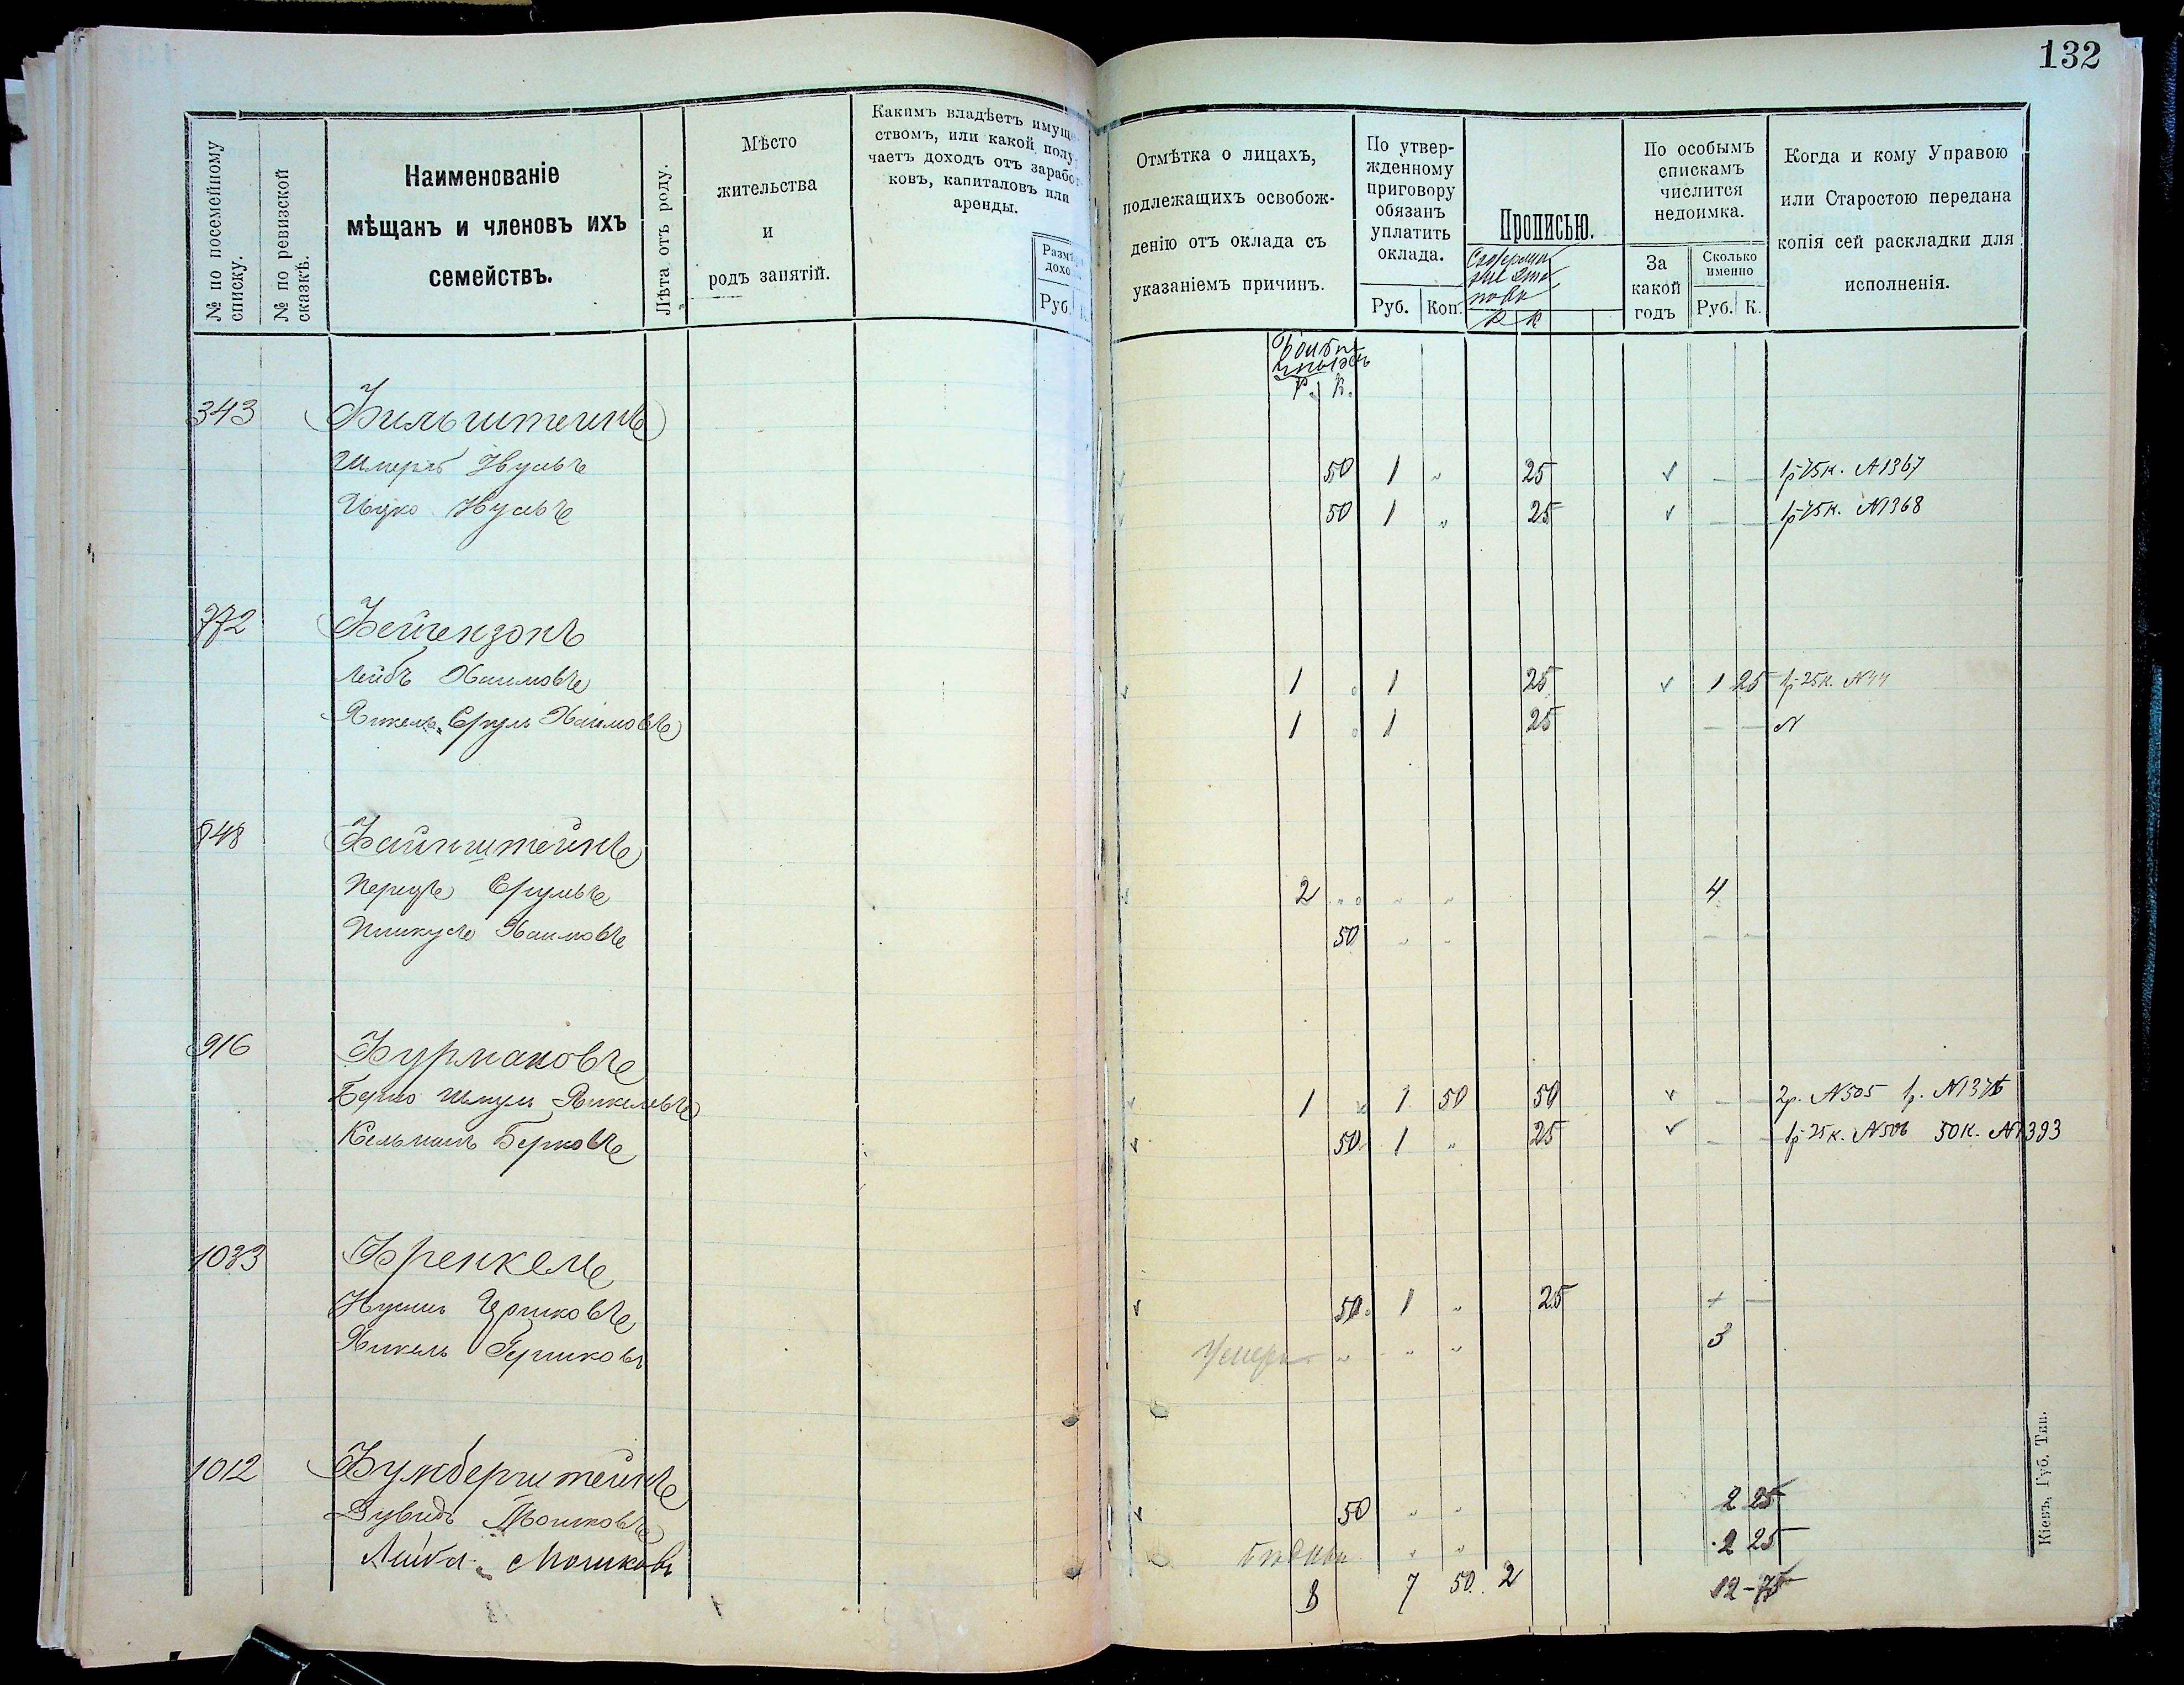 132
№ по посемейному списку.
№ по ревизской сказкѣ.
Наименованіе
мѣщанъ и членовъ ихъ
семействъ.
Лѣта отъ роду.
Мѣсто
жительства
и
родъ занятій.
Какимъ владѣетъ имуще-
ствомъ, или какой полу-
чаетъ доходъ отъ заработ-
ковъ, капиталовъ или
аренды.
Размѣръ
дохо
Руб. К.
Отмѣтка о лицахъ,
подлежащихъ освобож-
денію отъ оклада съ
указаніемъ причинъ.
По утвер-
жденному
приговору
обязанъ
уплатить
оклада.
Руб. Коп.
Прописью.
Р К
По особымъ
спискамъ
числится
недоимка.
За
какой
годъ
Сколько
именно
Руб. К.
Когда и кому Управою
или Старостою передана
копія сей раскладки для
исполненія.
Р. К.
343 Фильштейнъ
Шмеръ Нусъ 50 1 " 25 1р25к. №1367
Ицко 50 1 " 25 1р25к. №1368
772 Фейгензонъ
Лейбъ Хаимовъ 1 1 25 1 25 1р25к. №44
Янкель-Сруль Хаимовъ 1 1 25 №
848 Файнштейнъ
Перецъ Срулевъ 2 " " 4
Пинкусъ Хаимовъ 50 " "
916 Фурмановъ
Берко Шмуль Янкелевъ 1 1 50 50 2р. №505 1р.
Кельманъ Берковъ 50 1 " 25 1р25к. №506 50к. №1393
1033 Френкель
Нусинъ Гершковъ 50 1 " 25
Янкель Гершковъ Умеръ " " " 3
1012 Фукберштейнъ
Дувидъ Мошковъ 50 " " 2 25
Лейба Мошковъ " " 2 25
8 7 50 2 12-75
Кіевъ, Губ. Тип.